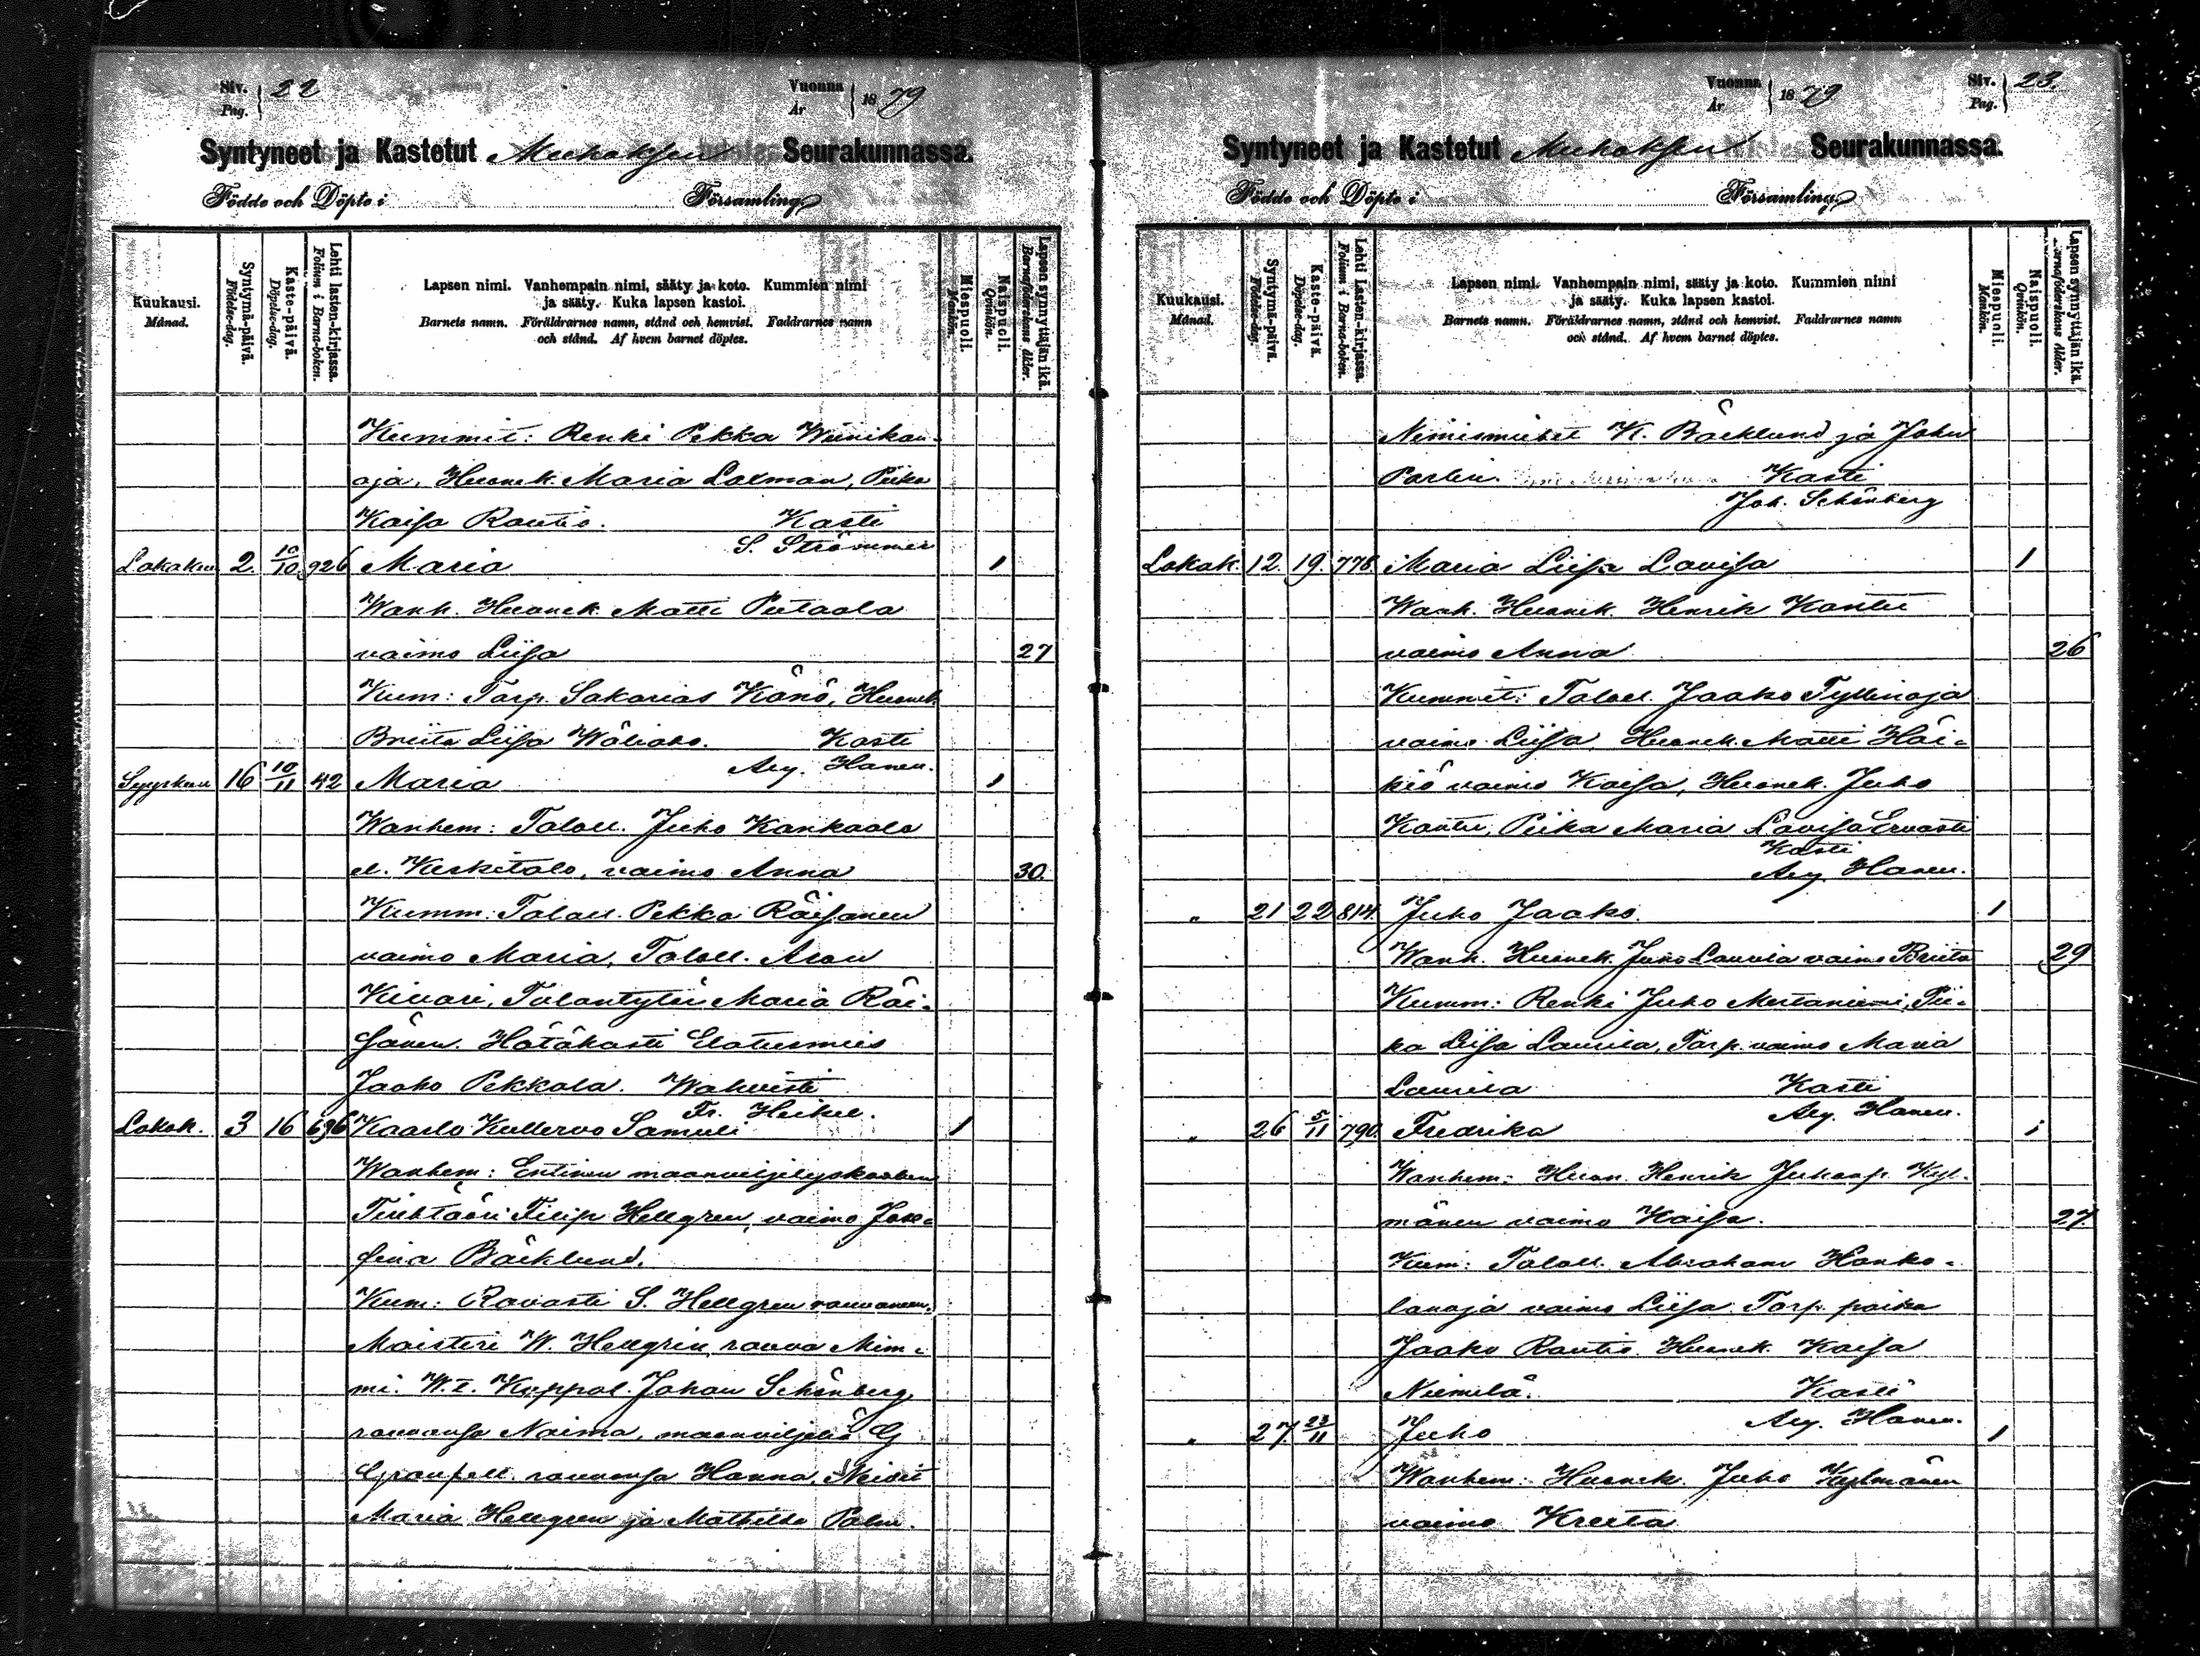 Siv. Pag. 22
Vuonna År 1879
Syntyneet ja Kastetut Muhoksen Seurakunnassa.
Födde och Döpte i Församling
Kuukausi. Månad.
Syntymä-päivä. Födelse-dag.
Kaste-päivä. Döpelse-dag.
Lehti lasten-kirjassa. Folium i Barna-boken.
Lapsen nimi. Vanhempain nimi, sääty ja koto. Kummien nimi
ja sääty. Kuka lapsen kastoi.
Barnets namn. Föräldrarnes namn, stånd och hemvist. Faddrarnes namn
och stånd. Af hvem barnet döptes.
Miespuoli. Mankön.
Naispuoli. Qvinkön.
Lapsen synnyttäjän ikä. Barnaföderskans ålder.
Kummit: Renki Pekka Weinikan-
oja, Huonek. Maria Laxman, Piika
Kaisa Rautio. Kasti
S. Strömmer
Lokakuu 2. 10/10. 926 Maria 1
Wanh. Huonek. Matti Pietaola
vaimo Liisa 27
Kum: Torp. Sakarias Känö, Huonek.
Briita Liisa Wäliaho. Kasti
Aug. Hanen.
Syyskuu 16 10/11 42 Maria 1
Wanhem: Taloll. Juho Kankaala
el. Keskitalo, vaimo Anna 30.
Kumm: Taloll. Pekka Räisänen
vaimo Maria, Taloll. Aron
Kivari, Talontytär Maria Räi-
sänen. Hätäkasti Elatusmies
Jaako Pekkala. Wahvisti
Fr. Heikel.
Lokak. 3 16 636 Kaarlo Kullervo Samuli 1
Wanhem: Entinen maanviljelyskoulun
Tirehtööri Filip Hellgren, vaimo Jose-
fina Bäcklund.
Kum: Rovasti S. Hellgren rouvaneen,
Maisteri W. Hellgren, rouva Mim-
mi. W.t. Kappal. Johan Schönberg
rouvansa Naima, maanviljeliä G
Granfelt rouvansa Hanna, Neidit
Maria Hellgren ja Mathilda Palm.
Vuonna År 1879
Siv. Pag. 23.
Syntyneet ja Kastetut Muhoksen Seurakunnassa.
Födde och Döpte i Församling
Kuukausi. Månad.
Syntymä-päivä. Födelse-dag.
Kaste-päivä. Döpelse-dag.
Lehti Lasten-kirjassa. Folium i Barna-boken.
Lapsen nimi. Vanhempain nimi, sääty ja koto. Kummien nimi
ja sääty. Kuka lapsen kastoi.
Barnets namn. Föräldrarnes namn, stånd och hemvist. Faddrarnes namn
och stånd. Af hvem barnet döptes.
Miespuoli. Mankön.
Naispuoli. Qvinkön.
Lapsen synnyttäjän ikä. Barnaföderskans ålder.
Nimismiehet K. Bäcklund ja John
Parlin. Kasti
Joh. Schönberg
Lokak. 12. 19. 778. Maria Liisa Lovisa 1
Wanh. Huonek. Henrik Kontu
vaimo Anna 26
Kummit: Taloll. Jaako Tyllinoja
vaimo Liisa, Huonek. Matti Häi-
kiö vaimo Kaisa, Huonek. Juho
Kontu, Piika Maria Lovisa Ervasti
Kasti
Aug. Hanen.
„ 21 22 814. Juho Jaako. 1
Wanh. Huonek. Juho Laurila vaimo Briita 29
Kumm: Renki Juho Mustaniemi, Pii-
ka Liisa Laurila, Torp. vaimo Maria
Laurila Kasti
Aug. Hanen.
„ 26 5/11 790. Fredrika 1
Wanhem: Huon. Henrik Juhonp. Kyl-
mänen vaimo Kaisa. 27.
Kum: Taloll. Abraham Honko-
lanoja vaimo Liisa Torp. poika
Jaako Rautio Huonek. Kaisa
Niemelä. Kasti
Aug. Hanen.
„ 27. 23/11 Juho 1
Wanhem: Huonek. Juho Kylmänen
vaimo Kreeta